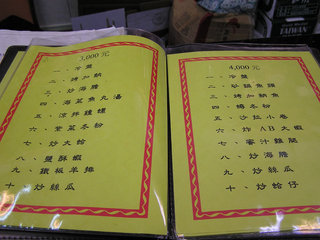 3,000元
一、冷盤
二、烤加納
三、炒海膽
四、海菜魚丸湯
五、涼拌鐘螺
六、紫菜冬粉
七、炒大蛤
八、鹽酥蝦
九、鐵板羊排
十、炒絲瓜
4,000元
一、冷盤
二、砂鍋魚頭
三、烤加納魚
四、蟳冬粉
五、沙拉小卷
六、炸AB大蝦
七、蜜汁雞腿
八、炒海膽
九、炒絲瓜
十、炒蛤仔
TAIWAN